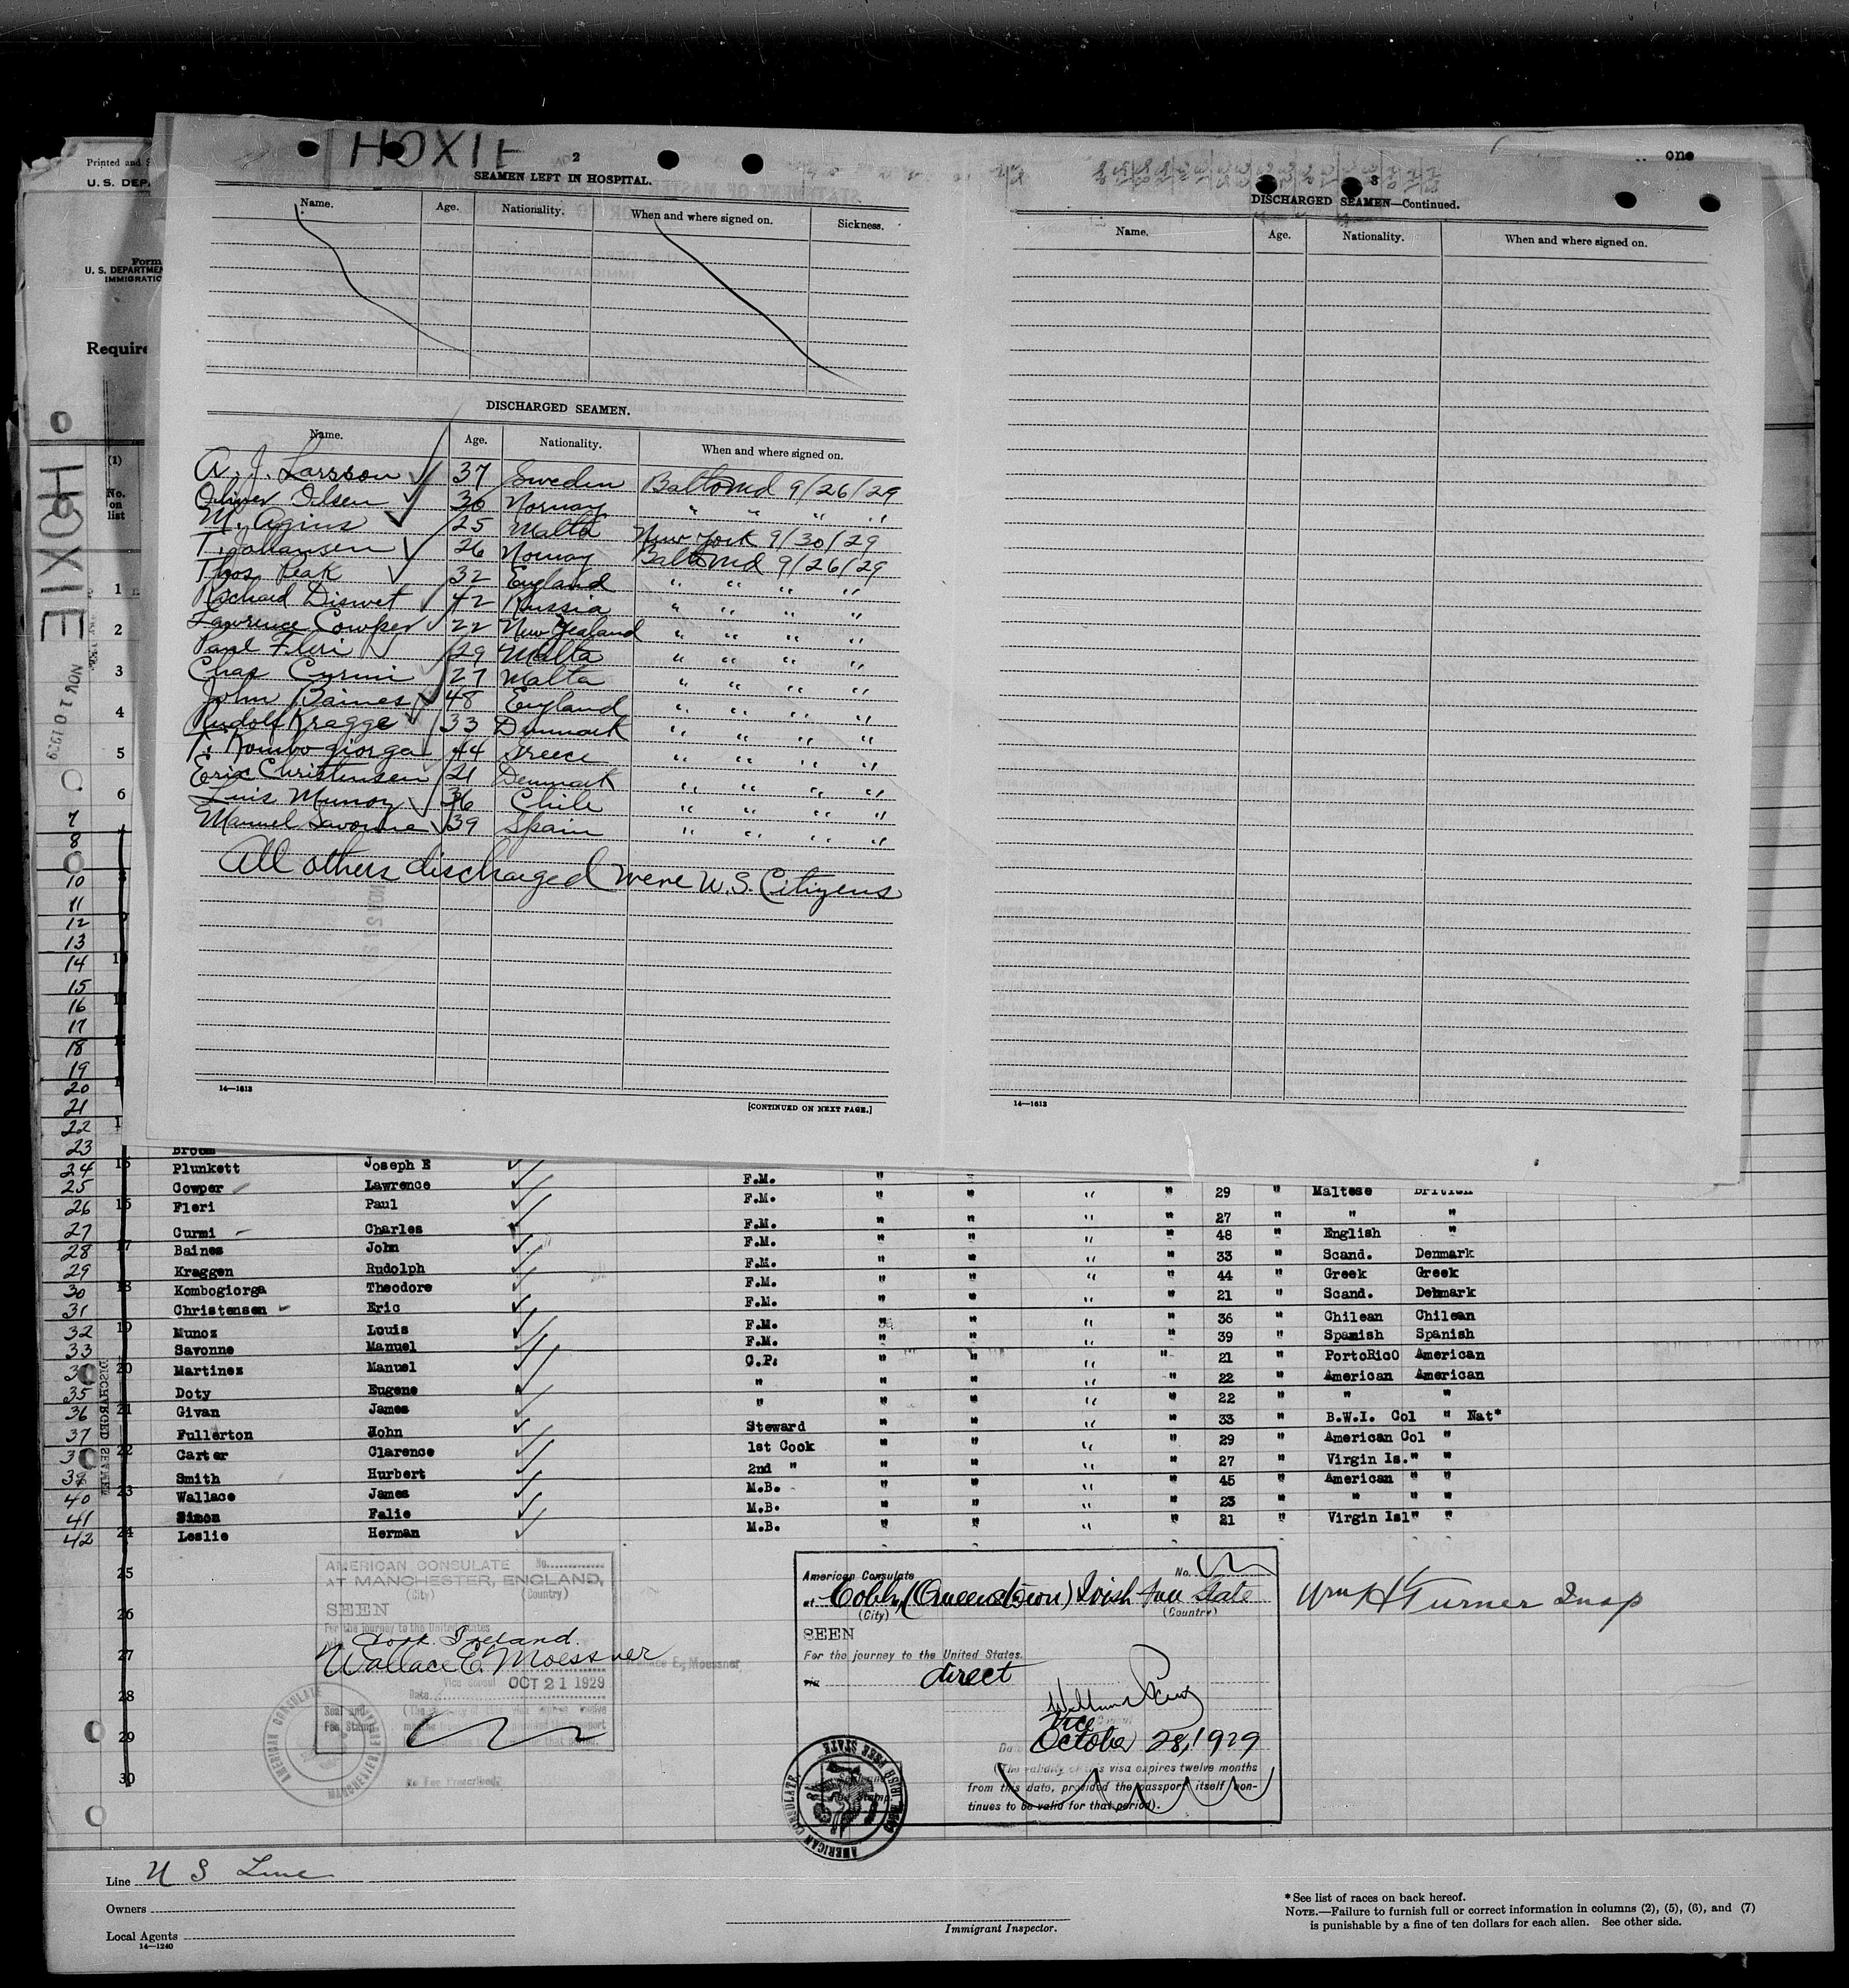 HOXIE
one
Printed and S
U. S. DEP
Form
U. S. DEPARTMEN
IMMIGRATIC
Require
(1)
No.
on
list
HOXIE
2
SEAMEN LEFT IN HOSPITAL.
Name. Age. Nationality. When and where signed on. Sickness.
DISCHARGED SEAMEN.
Name. Age. Nationality. When and where signed on.
A. J. Larsson 37 Sweden Balto Md 9/26/29
Oliver Olsen 36 Norway " " " "
M. Agius 25 Malta New York 9/30/29
T. Johansen 26 Norway Balto Md 9/26/29
Thos Peak 32 England " " " "
Richard Diswet 42 Russia " " " "
Lawrence Cowper 22 New Zealand " " " "
Paul Fleri 29 Malta " " " "
Chas Curmi 27 Malta " " " "
John Baines 48 England " " " "
Rudolf Kragge 33 Denmark " " " "
T. Kombogiorga 44 Greece " " " "
Eric Christensen 21 Denmark " " " "
Luis Munoz 36 Chile " " " "
Manuel Savonne 39 Spain " " " "
All others discharged were U.S. Citizens
14—1613
[CONTINUED ON NEXT PAGE.]
3
DISCHARGED SEAMEN—Continued.
Name. Age. Nationality. When and where signed on.
14—1613
1
2
3
4
5
6
7
8
10
11
12
13
14
15
16
17
18
19
20
21
22
23 Broom
24 Plunkett Joseph E F.M. " " " "
25 Cowper Lawrence F.M. " " " " 29 " Maltese British
26 Fleri Paul F.M. " " " " 27 " " "
27 Curmi Charles F.M. " " " " 48 " English "
28 Baines John F.M. " " " " 33 " Scand. Denmark
29 Kraggen Rudolph F.M. " " " " 44 " Greek Greek
30 Kombogiorga Theodore F.M. " " " " 21 " Scand. Denmark
31 Christensen Eric F.M. " " " " 36 " Chilean Chilean
32 Munoz Louis F.M. " " " " 39 " Spanish Spanish
33 Savonne Manuel C.P. " " " " 21 " PortoRicO American
Martinez Manuel " " " " " 22 " American American
35 Doty Eugene " " " " " 22 " " "
36 Givan James Steward " " " " 33 " B.W.I. Col " Nat*
37 Fullerton Hohn 1st Cook " " " " 29 " American Col "
Carter Clarence 2nd " " " " " 27 " Virgin Is." "
38 Smith Hurbert M.B. " " " " 45 " American " "
40 Wallace James M.B. " " " " 23 " " " "
41 Simon Falie M.B. " " " " 21 " Virgin Isl" "
42 Leslie Herman
DISCHARGED SEAMEN
25
26
27
28
29
30
AMERICAN CONSULATE No.
AT MANCHESTER, ENGLAND,
(City) (Country)
SEEN
For the journey to the United States
Cork Ireland.
Wallace E. Moessner
Wallace E. Moessner
Vice Consul OCT 21 1929
Date
Seal and
Fee Stamp
No Fee Prescribed.
AMERICAN CONSULATE
American Consulate No.
at Cobh, (Queenstown) Irish Free State
(City) (Country)
SEEN
For the journey to the United States.
via direct
Vice
October 28, 1929
(The validity of this visa expires twelve months
from this date, provided the passport itself con-
tinues to be valid for that period).
AMERICAN CONSULATE COBH, IRISH FREE STATE
Wm H Turner Insp
Line U S Line
Owners
Local Agents
14—1240
Immigrant Inspector.
* See list of races on back hereof.
NOTE.—Failure to furnish full or correct information in columns (2), (5), (6), and (7)
is punishable by a fine of ten dollars for each alien. See other side.